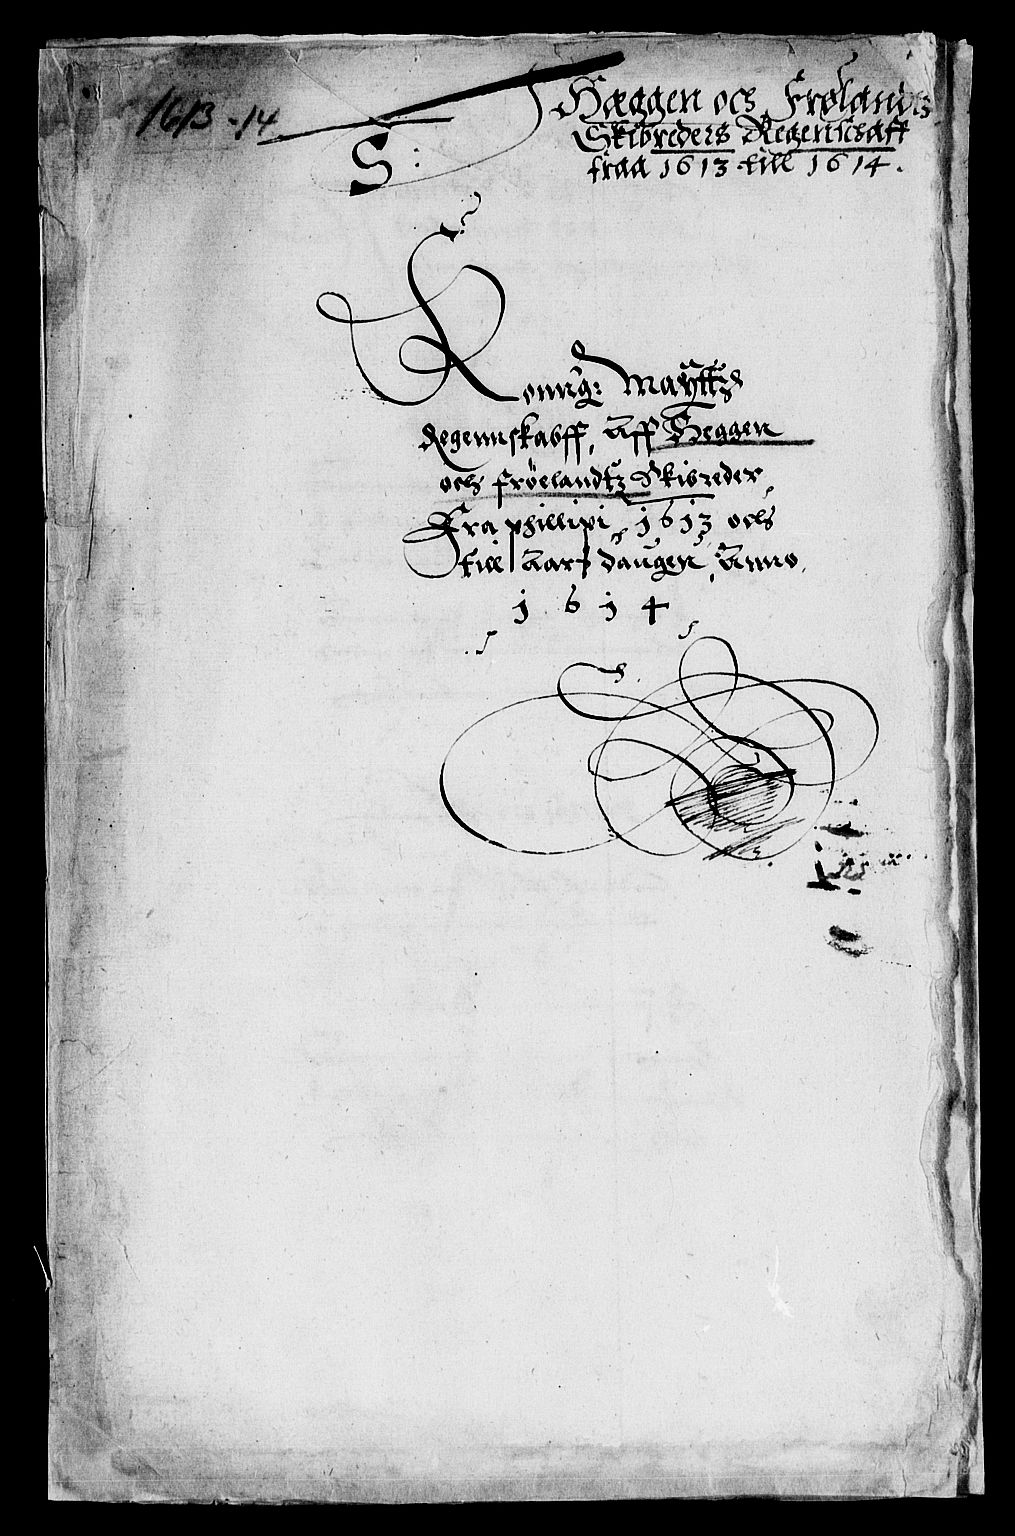 1613-14
Hæggen och Frølandtz
Skibreders Regenschaff
fraa 1613 till 1614.
S:
Konng: Maytts
Regennskabff, Aff Heggen
och fröelandtz Skibreder,
Fra phillipi, 1613 och
till Aars daugen, Anno,
1614